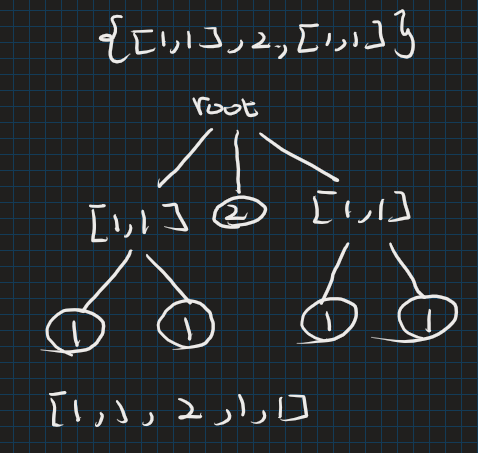 {[1,1],2,[1,1]}
root
[1,1] 2 [1,1]
1 1 1 1
[1,1,2,1,1]